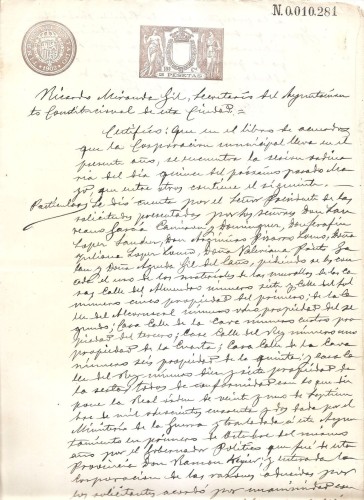 N.0.010.281
PESETAS
Ricardo Miranda Gil, Secretario del Ayuntamien-
to Constitucional de esta Ciudad.=
Certifico: Que en el libro de acuerdos
que la Corporacion municipal lleva en el
presente año, se encuentra la sesion ordina-
ria del dia quince del próximo pasado Ma-
yo, que entre otros contiene el siguiente.
Particular / Se dió cuenta por el Señor Presidente de las
solicitudes presentadas por los Señores Don
García Dominguez, Don
Lopez Don Lomo, Doña
Juliana Lopez Lomo, Doña
y Doña del Caño, pidiendo se les con-
ceda el uso de los materiales de las murallas de las ca-
sas Calle del número siete y Calle del Sol
número cinco propiedad del primero; de la Ca-
lle del número propiedad del se-
gundo; Casa Calle de la Cava número cuatro pro-
piedad del tercero; Casa Calle del Rey número
propiedad de la Cuarta; Casa Calle de la Cava
número seis propiedad de la quinta; y casa Ca-
lle del Rey número diez y siete propiedad de
la sexta, todas de conformidad con lo que dis-
pone la Real órden de veinte y uno de Septiem-
bre de mil ochocientos cincuenta y dos dada por el
Ministerio de la Guerra y trasladada á este Ayun-
tamiento en primero de Octubre del mismo
año por el Gobernador Politico que fué de esta
Provincia Don Ramon y enterada la
Corporacion de las razones aducidas por
los solicitantes acordó por unanimidad con